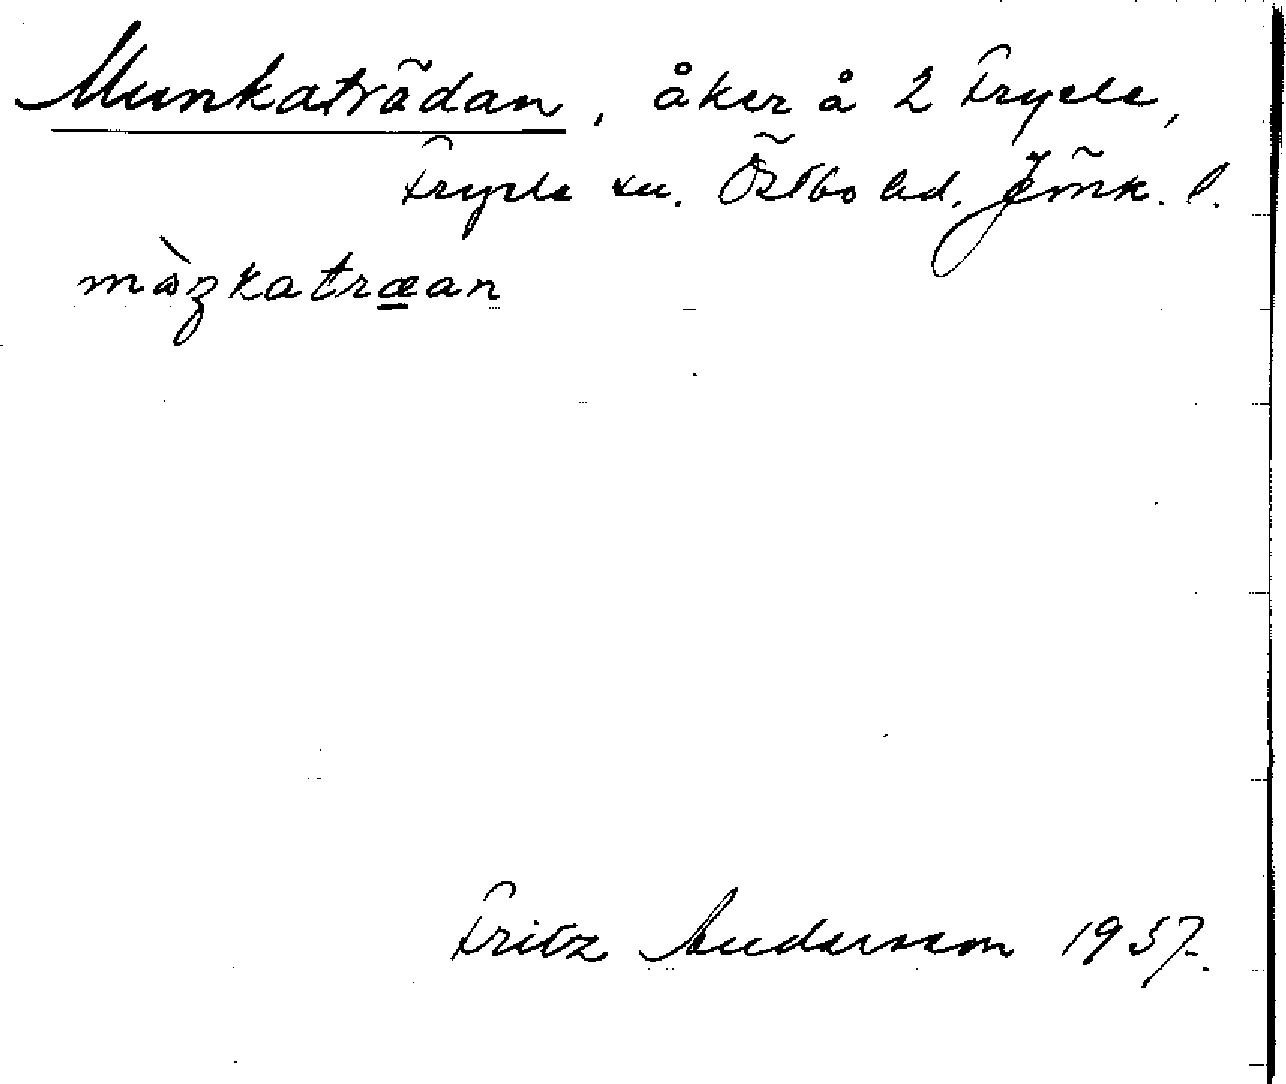 Munkaträdan, åker å 2 Fryele,
Fryele sn. Östbo hd. Jönk. l.
mòŋkatræan
Fritz Andersson 1937.